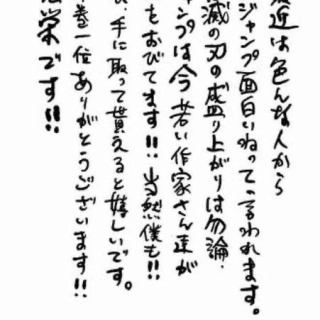 近は色んな人から
ジャンプ面白いねって言われます。
滅の刃の盛り上がりは勿論
ンプは今若い作家さん達が
もおびてます!!当然僕も!!
手に取って貰えると嬉しいです。
巻一位ありがとうございます!!
栄です!!